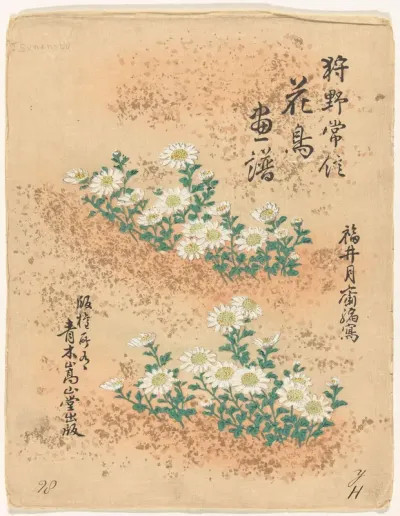 TSUNENOBU
狩野常信
花鳥
畫譜
福井月齋編寫
版権所有
青木嵩山堂出版